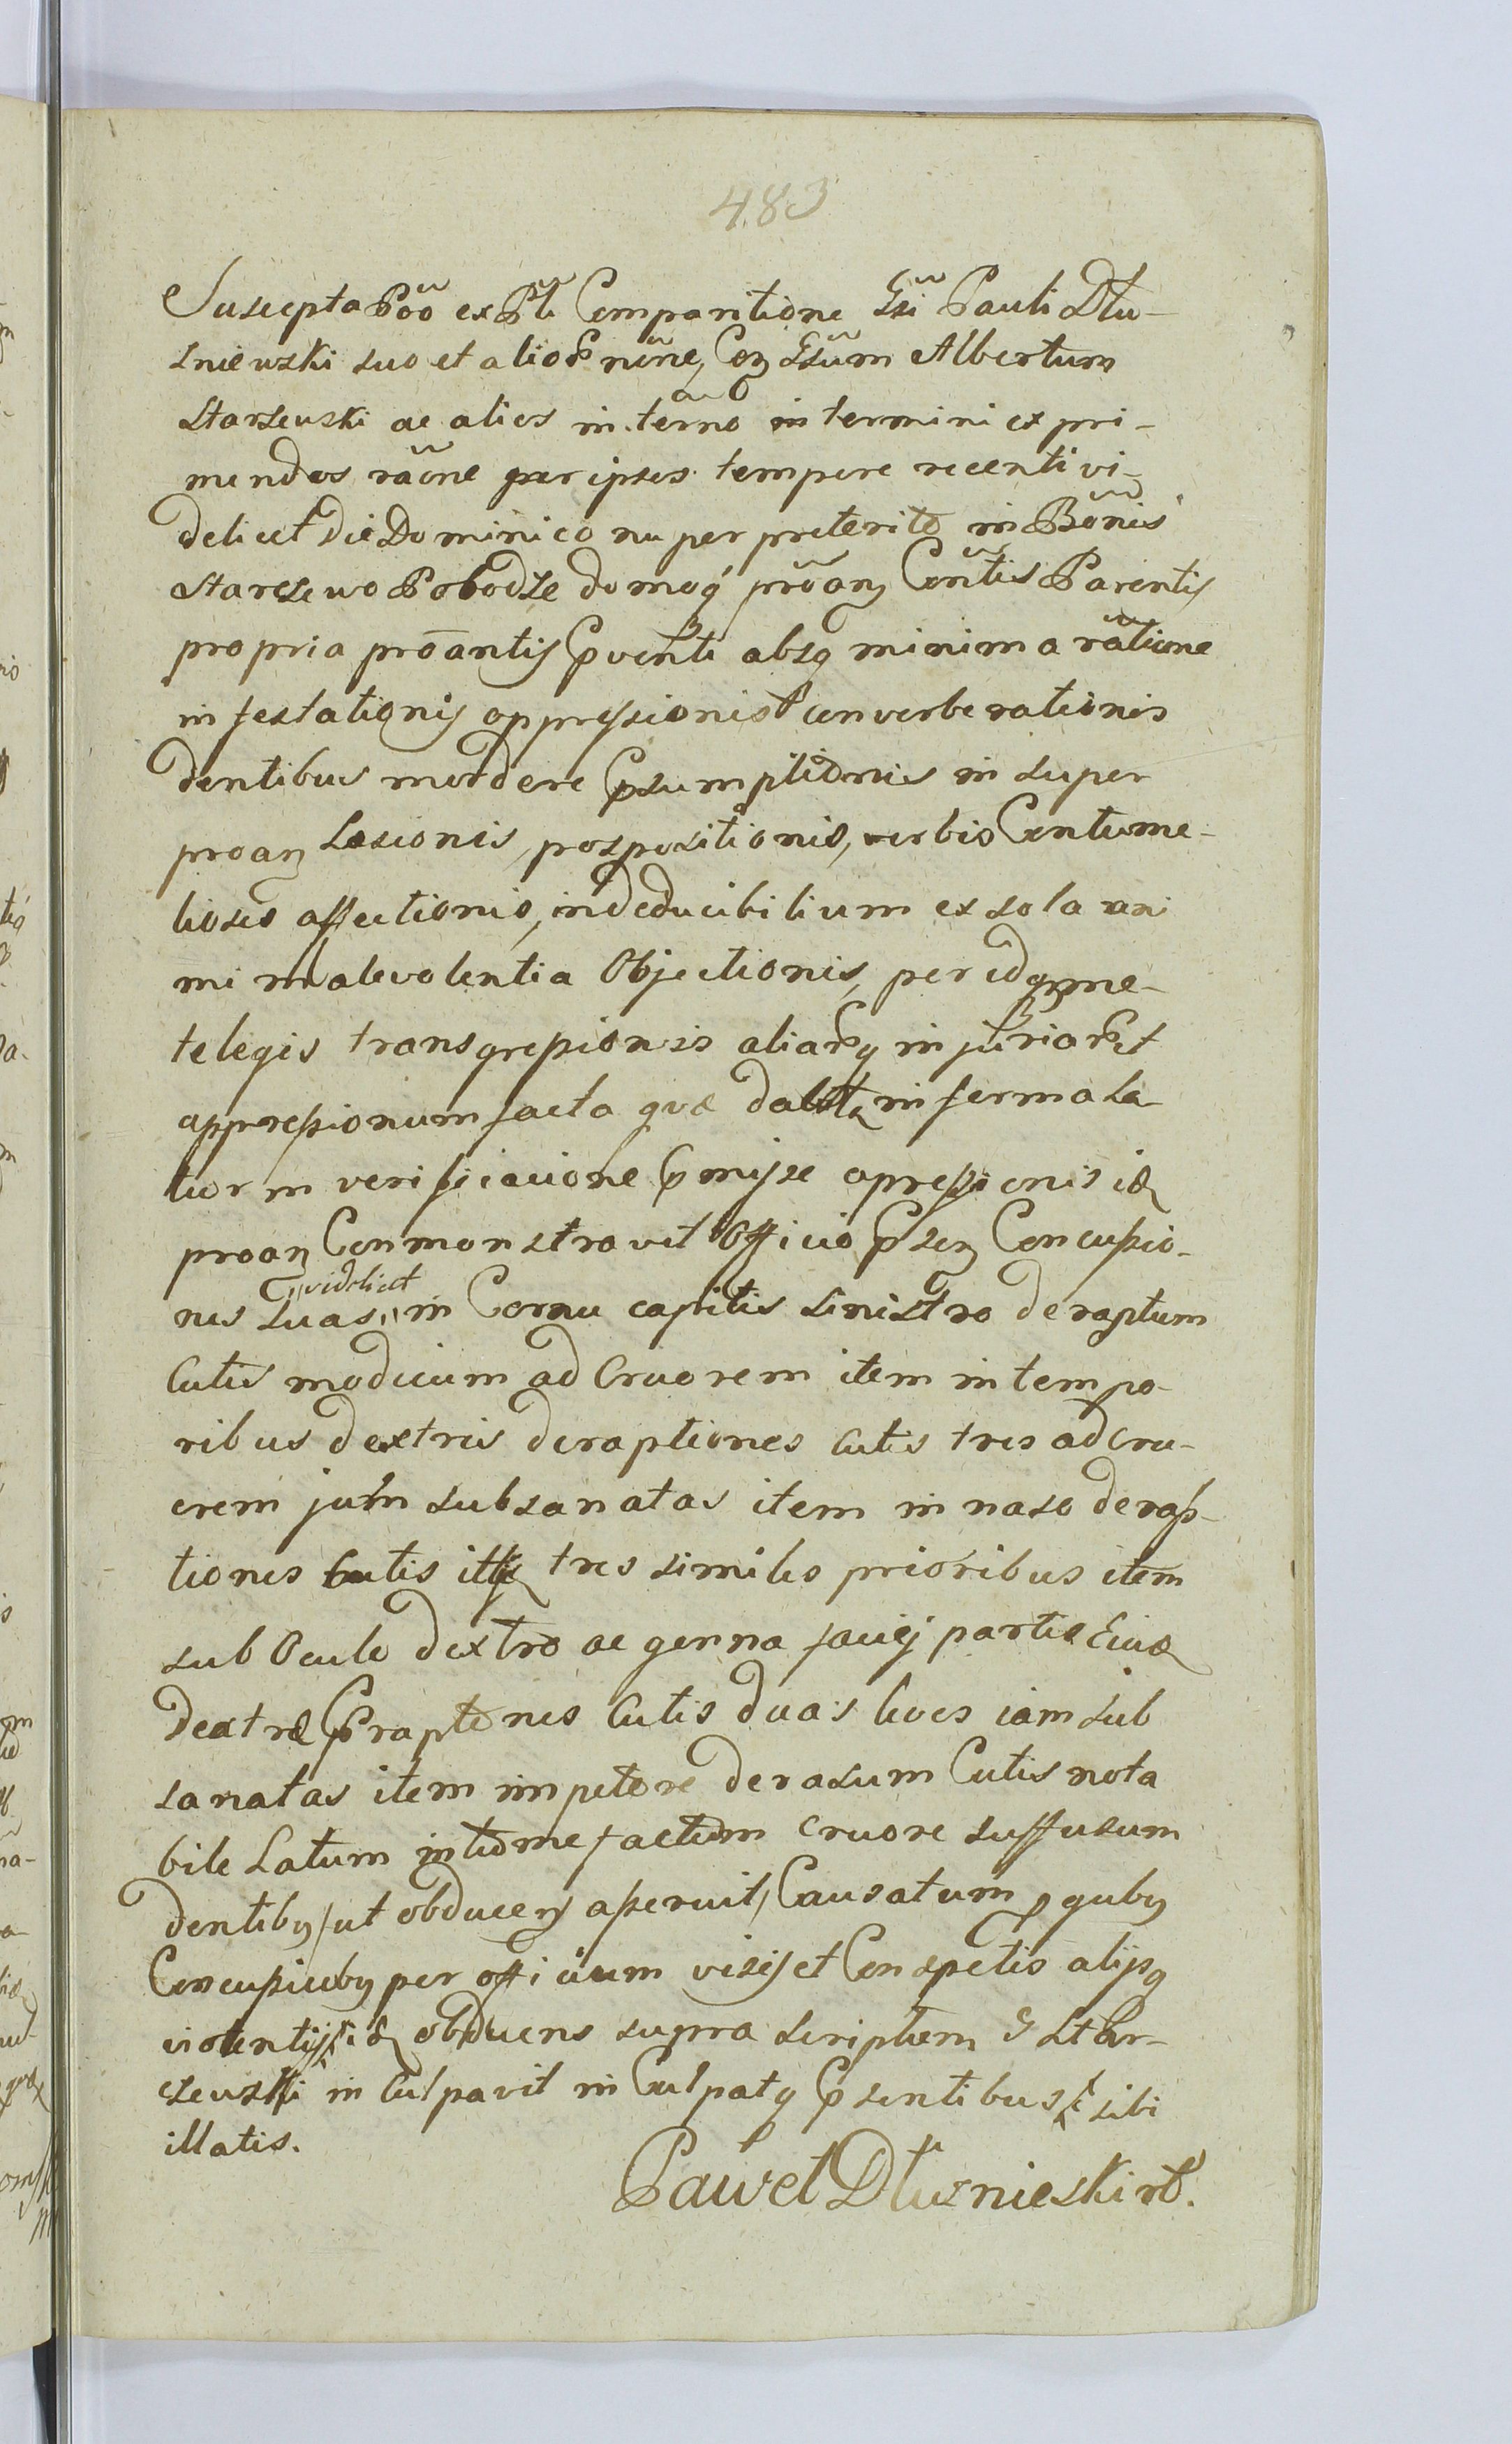 483
Suscepta Pō̃o ex Pt̃i Comparitione Gs̃i Pauli Dłu-
sniewski suo et alior̃ nõne, Coꝫ Gsũm Albertum
Starsewski ac alios in tẽrno in termini expri-
mendos rãone per ipsos tempore recenti vi-
delicet die Dominico nuper preterito in Bõnis
Starczewo Pobodze domoq́ prõanꝫ Cõntis Parentis
propria prõantis Pventi absq minima rãtione
infestationis oppressionis converberationis
dentibus mordere Psumptionis insuper
proanꝫ Lesionis, pospositionis, verbis Contume-
liosis affectionis, indeducibilium ex sola ani
mi malevolentia Objectionis, per id grme-
telegis transgressionis aliarq injuriar et
oppressionum facta qvæ dum informala
tur in verificacione Pmisse opressionis id
proanꝫ Conmonstravit Officio Psenꝫ Concussio-
nes suas videlicet in Cornu capitis sinistro deraptum
Cutis modicum ad Cruorem item in tempo-
ribus dextris deraptiones Cutis tres ad Cru-
orem jam subsanatas item in naso derap-
tiones Cutis itq tres similes prioribus item
sub Oculo dextro ac genna faciej partis Eius
dextræ Praptones Cutis duas leves iam sub
sanatas item in petore derasum Cutis nota
bile Latum intumefactum cruore suffusum
dentibus ut obducens aperuit, Causatum p qubus
Concussiobus per officium visis et Conspetis alijsq
violentijs id obducens supra scriptum G Star-
czewski inculpavit inCulpatq Psentibus sibi
illatis.
Paweł Dłusnieski mp.